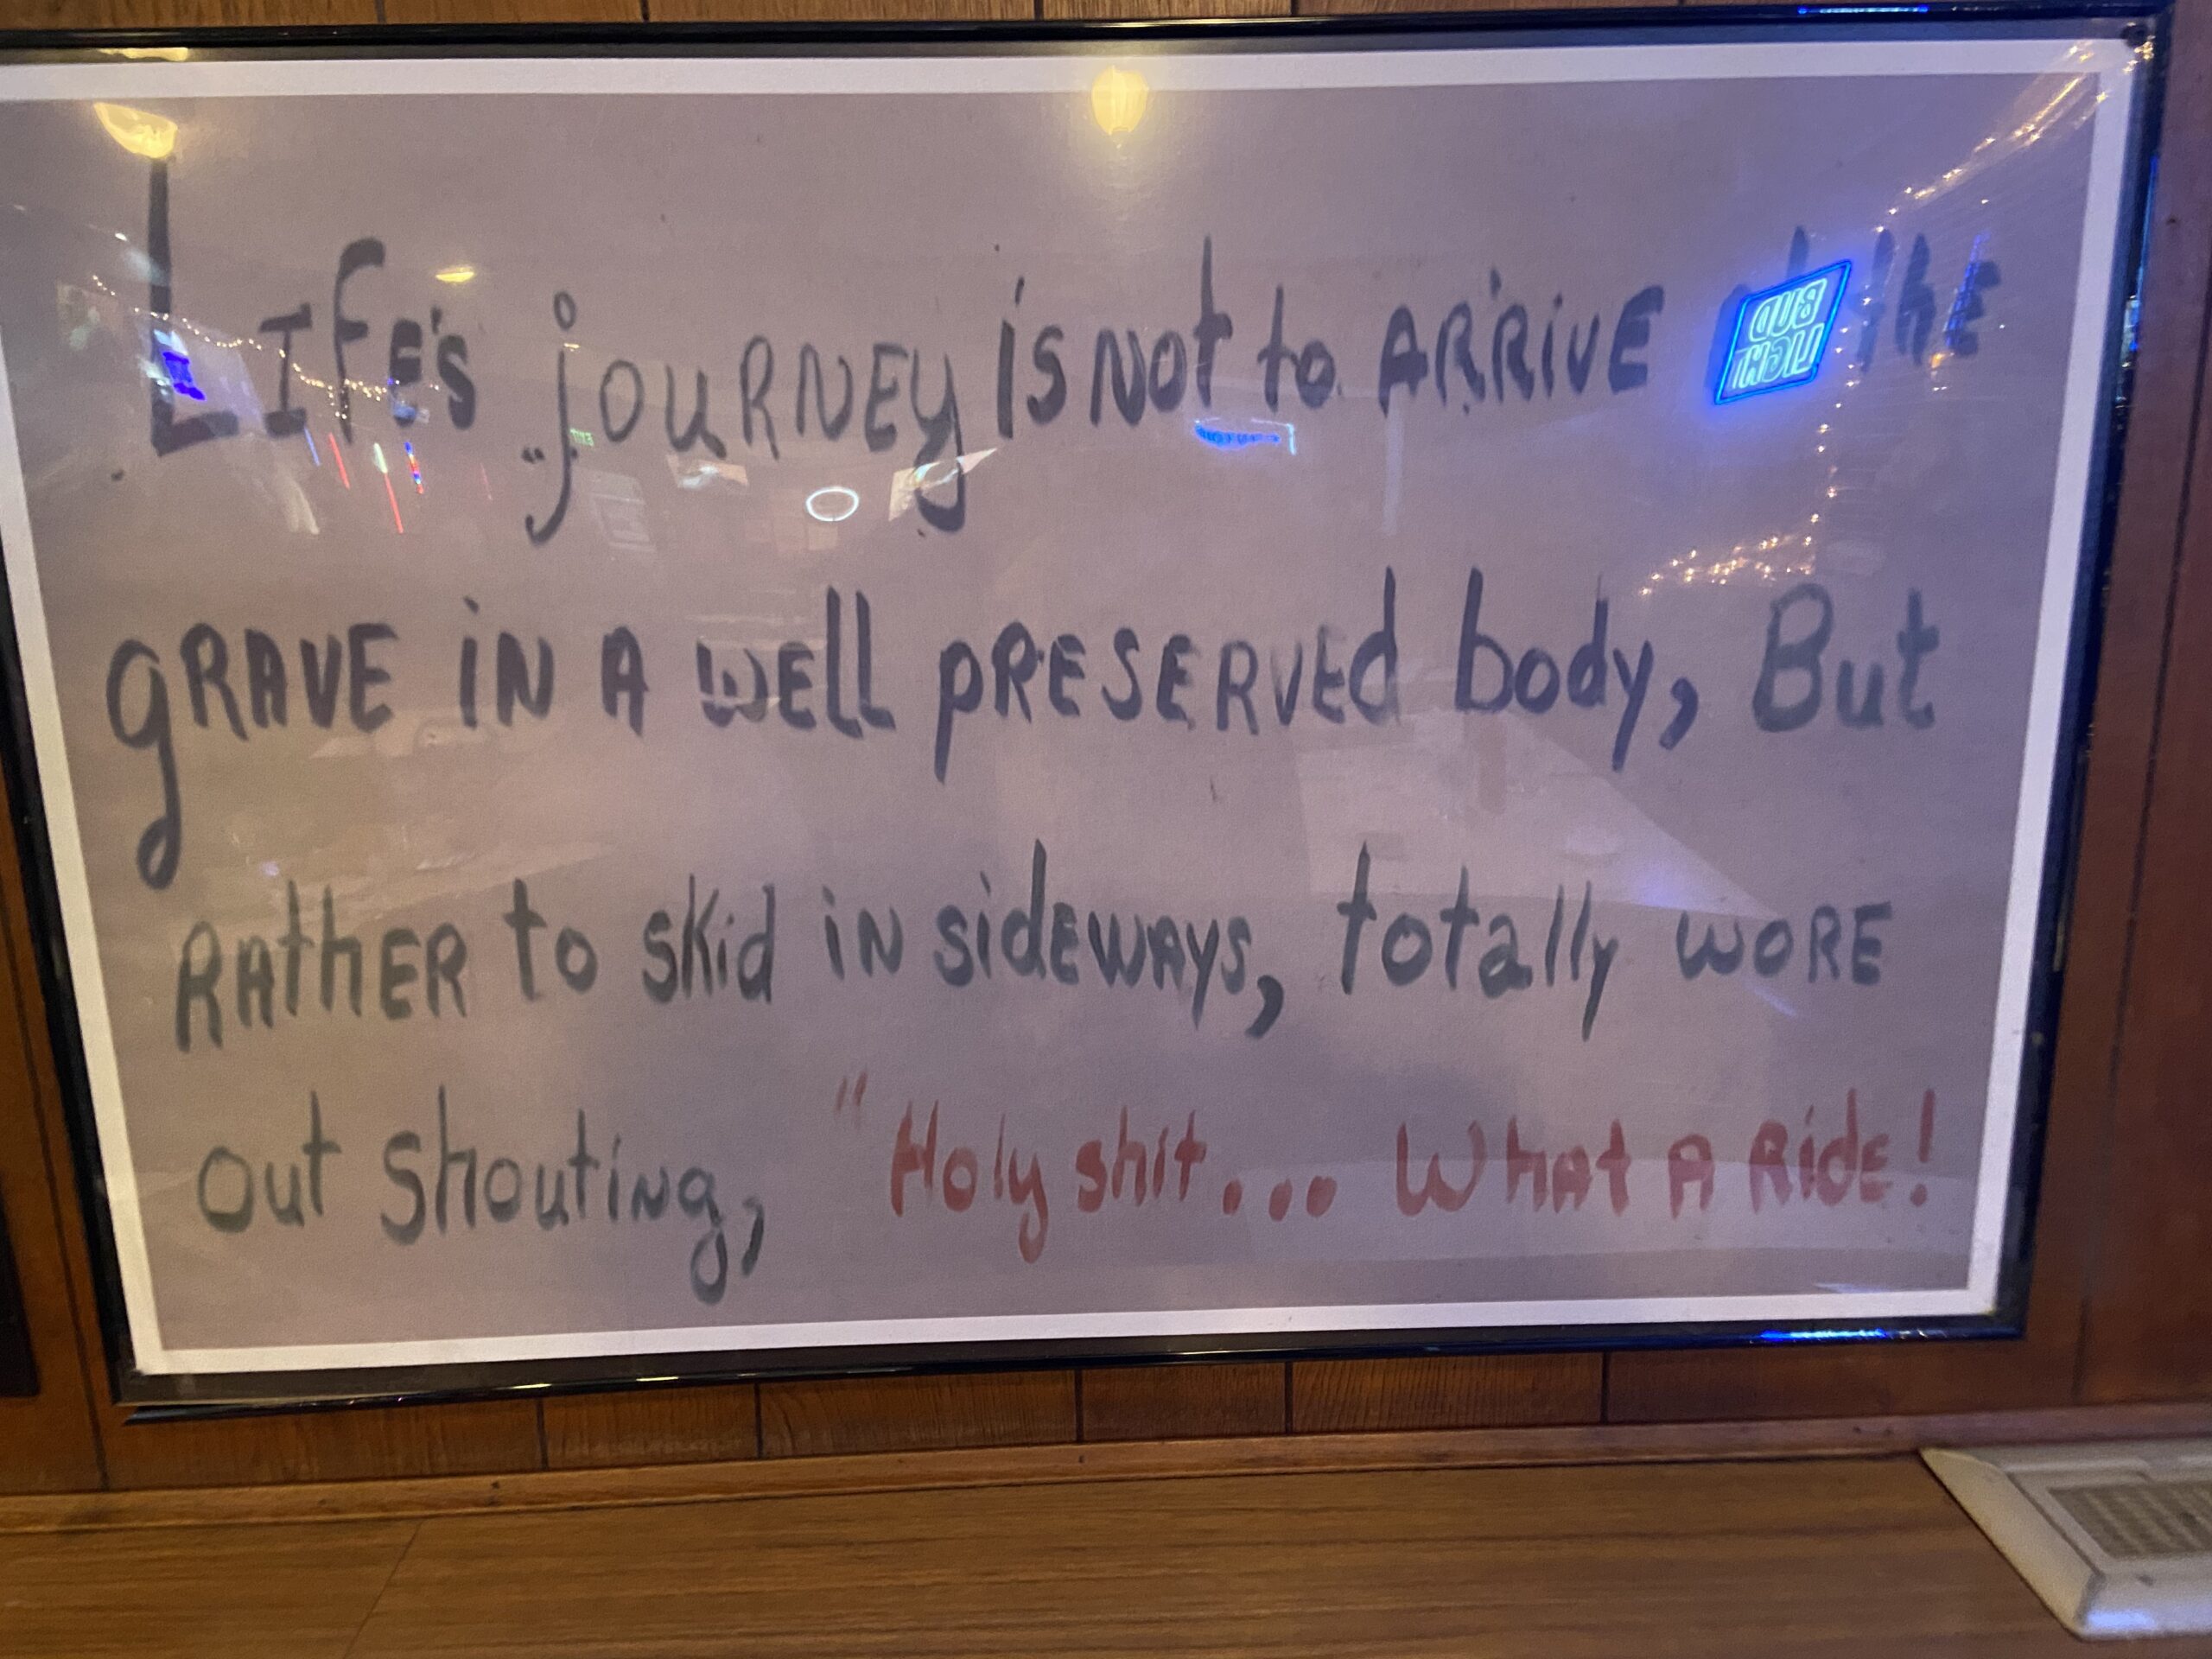 LIfE's jOURNEY is Not to ARRiVE the
gRAVE iN A WEll pRESERVEd body, But
RAthER to skid iN sidEWAYs, totally WORE
out shoutiNg, "Holy shit... What A RidE!
BUD
LIGHT
EXIT